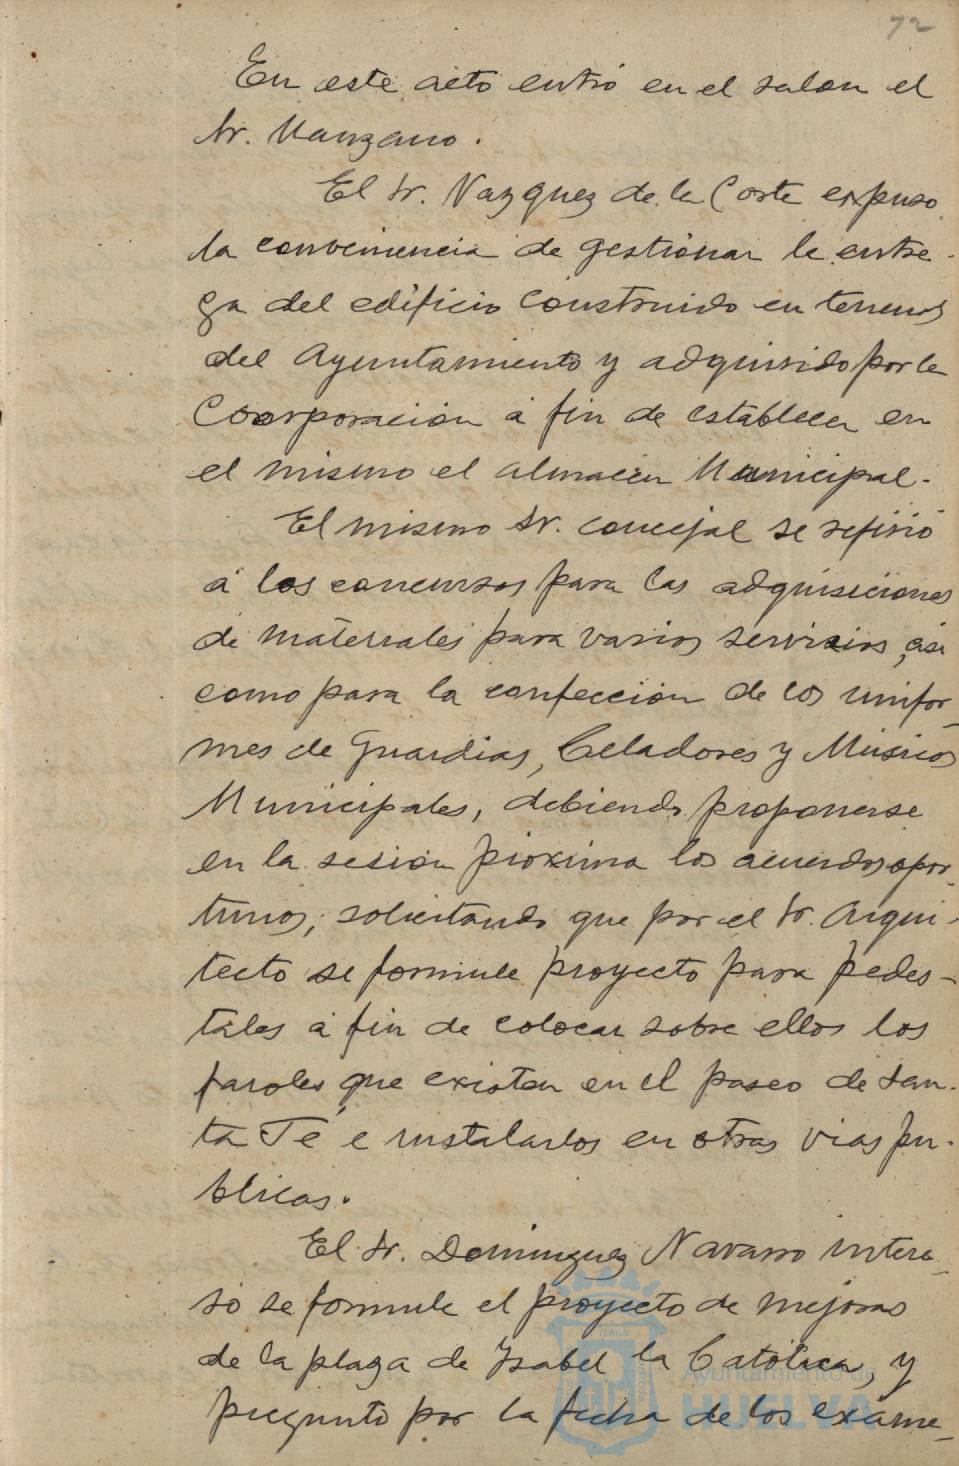 72
En este acto entró en el salon el
Sr. Manzano.
El Sr. Vazquez de la Corte expuso
la conveniencia de gestionar la entre-
ga del edificio construido en terrenos
del Ayuntamiento y adquirido por la
Coorporación á fin de establecer en
el mismo el almacén Municipal.
El mismo Sr. concejal se refirió
á los concursos para las adquisiciones
de materiales para varios servicios, asi
como para la confección de los unifor-
mes de Guardias, Celadores y Músicos
Municipales, debiendo proponerse
en la sesión próxima los acuerdos opor-
tunos; solicitando que por el Sr. Arqui-
tecto se formule proyecto para pedes-
tales á fin de colocar sobre ellos los
faroles que existen en el paseo de San-
ta Fé é instalarlos en otras vias pú-
blicas.
El Sr. Dominguez Navarro intere-
só se formule el proyecto de mejoras
de la plaza de Ysabel la Católica, y
preguntó por la fecha de los exáme-
Ayuntamiento de
HUELVA